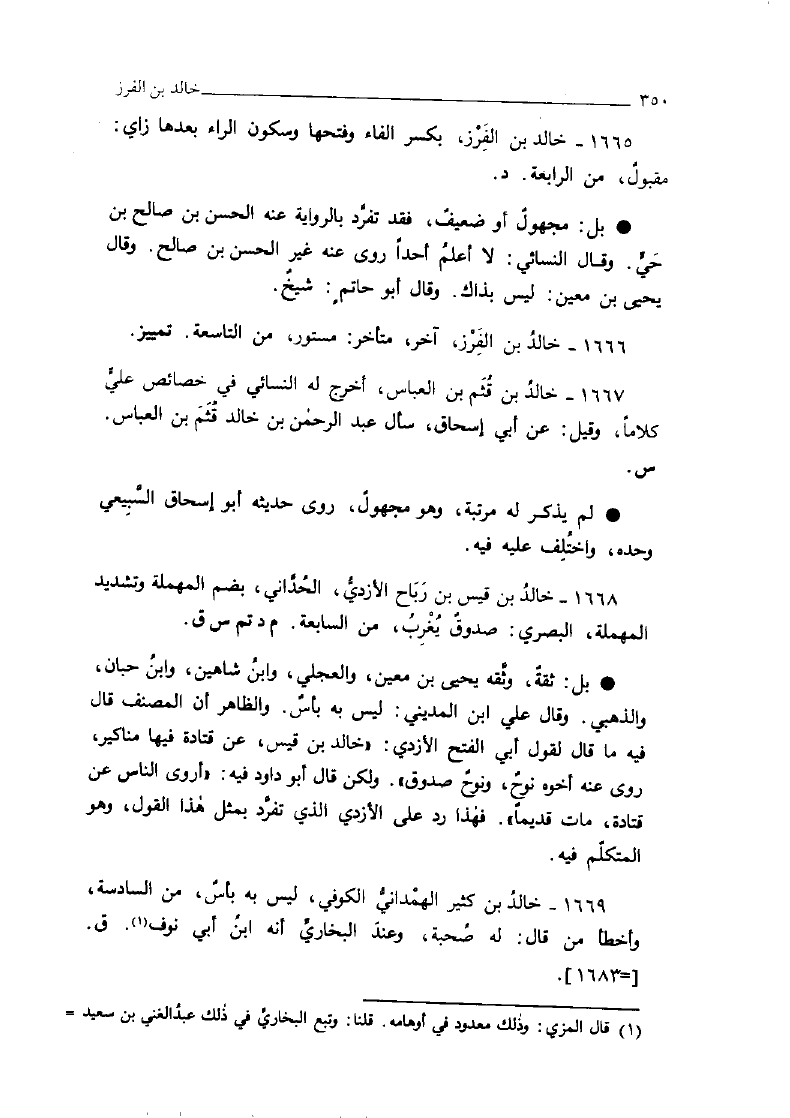 ٣٥٠ خالد بن الفرز
١٦٦٥ ـ خالد بن الفَِرْز، بكسر الفاء وفتحها وسكون الراء بعدها زاي:
مقبولٌ، من الرابعة. د.
● بل: مجهولٌ أو ضعيفٌ، فقد تفرَّد بالرواية عنه الحسن بن صالح بن
حَيٍّ. وقال النسائي: لا أعلمُ أحداً روى عنه غير الحسن بن صالح. وقال
يحيى بن معين: ليس بذاك. وقال أبو حاتمٍ: شيخٌ.
١٦٦٦ ـ خالدُ بن الفَِرْز، آخر، متأخر: مستور، من التاسعة. تمييز.
١٦٦٧ ـ خالدُ بن قُثَم بن العباس، أخرج له النسائي في خصائص عليٍّ
كلاماً، وقيل: عن أبي إسحاق، سأل عبد الرحمٰن بن خالد قُثَمَ بن العباس.
س.
● لم يذكر له مرتبة، وهو مجهولٌ، روى حديثه أبو إسحاق السَّبِيعي
وحده، واختُلِف عليه فيه.
١٦٦٨ ـ خالدُ بن قيس بن رَبَاح الأزديُّ، الحُدَّاني، بضم المهملة وتشديد
المهملة، البصري: صدوقٌ يُغْرِبُ، من السابعة. م د تم س ق.
● بل: ثقةٌ، وثَّقه يحيى بن معين، والعجلي، وابنُ شاهين، وابنُ حبان،
والذهبي. وقال علي ابن المديني: ليس به بأسٌ. والظاهر أن المصنف قال
فيه ما قال لقول أبي الفتح الأزدي: «خالد بن قيس، عن قتادة فيها مناكير،
روى عنه أخوه نوحٌ، ونوحٌ صدوق». ولكن قال أبو داود فيه: «أروى الناس عن
قتادة، مات قديماً». فهٰذا رد على الأزدي الذي تفرَّد بمثل هٰذا القول، وهو
المتكلّم فيه.
١٦٦٩ ـ خالدُ بن كثير الهمْدانيُّ الكوفي، ليس به بأسٌ، من السادسة،
وأخطأ من قال: له صُحبة، وعندَ البخاريِّ أنه ابنُ أبي نوف(١). ق.
[=١٦٨٣].
(١) قال المزي: وذٰلك معدود في أوهامه. قلنا: وتبع البخاريَّ في ذٰلك عبدُالغني بن سعيد =